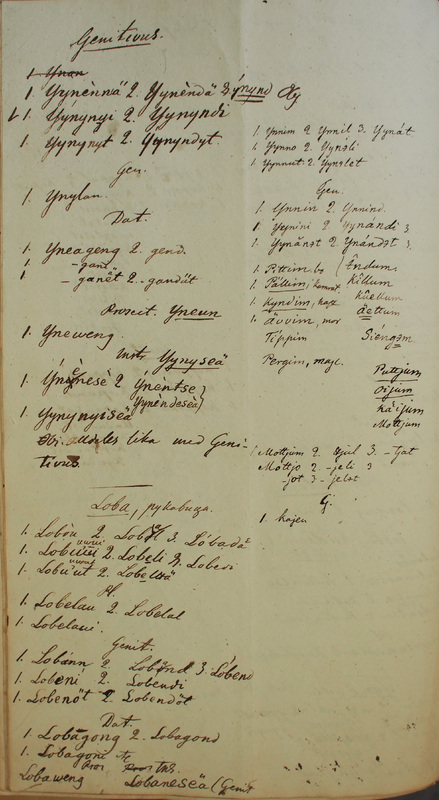 Genitivus.
1 Ynan
1 Yynènnä 2. Yynèndä 3 ýnynd
1. Yýnynyi 2. Yynyndi
1. Yynynyt 2. Yynyndyt.
Gen.
1. Ynylan.
Dat.
1. Yneageng 2. gend.
1 - gani
1 - ganët 2. - gandüt
Prosecut. Yneun
1. Yneweng.
Instr. Yynyseä
1. Ynènesè 2 Ýnèntse
1. Yynynyiseä Yynèndeseä
Abi. alldeles lika med Geni-
tivus.
Loba, рукавица.
1. Lobòu 2. Lobòl 3. Lóbadà
1. Lobeuni 2. Lobeli 3. Lobedi
1. Lobüut 2. Lobeltä
Pl.
1. Lobelau 2. Lobelal
1. Lobelani.
Genit.
1. Lobánn 2. Lobänd 3. Lóbend
1. Lobeni 2. Lobendi
1. Lobenöt 2. Lobendöt
Dat.
1. Lobagong 2. Lobagond
1. Lobagoni
Pros Instr.
Lobaweng Lobaneseä (Genit
1. Ynnim 2 Ynnil 3. Yynát
1. Yynno 2. Yynsli
1. Yynnut. 2. Yynslet
Gen.
1. Ynnin 2. Ynnind.
1. Yynini 2. Yynándi 3
1. Yynänst 2. Ynándst 3.
1. Pittim. (Èndum.
1. Pállim, killum
1. Kyndim,küëllum
1. ävvim, mor äettum
Tippim Siéngam
Pergim, majl.
Puttjum
oijum
häijum
Mottjum
1 Mottjum 2. tjül 3. - tjat
Mottjo 2. - jeli 3
- jot 3 - jelst
G.
1. hajen